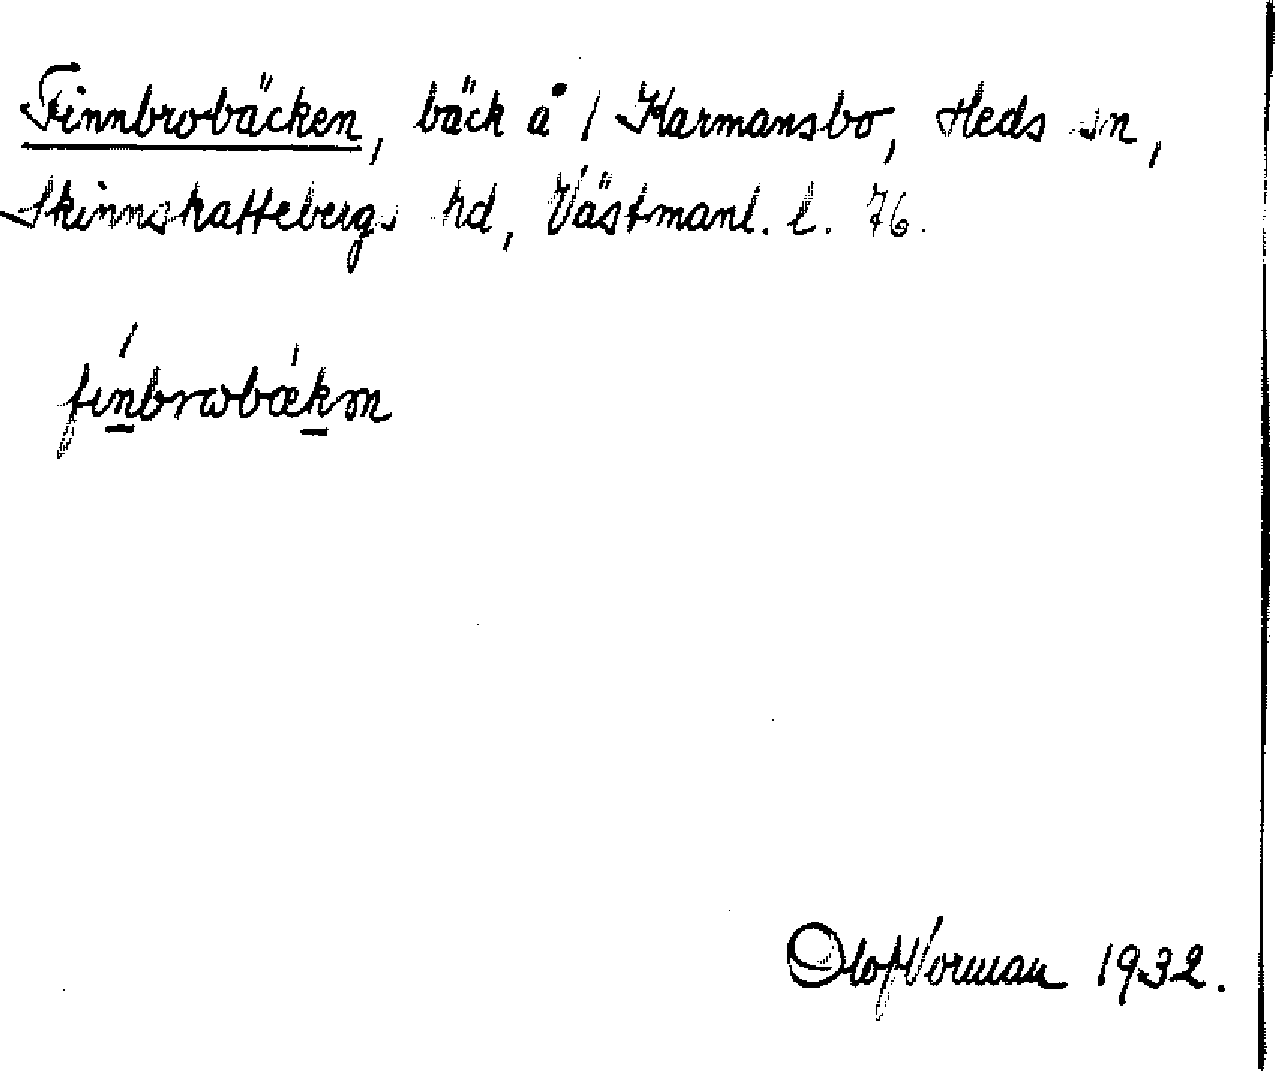 Finnbrobäcken, bäck å / Karmansbo, Heds sn,
Skinnskattebergs hd, Västmanl. l. 76.
fínbrωbǽkm
Olof Norman 1932.